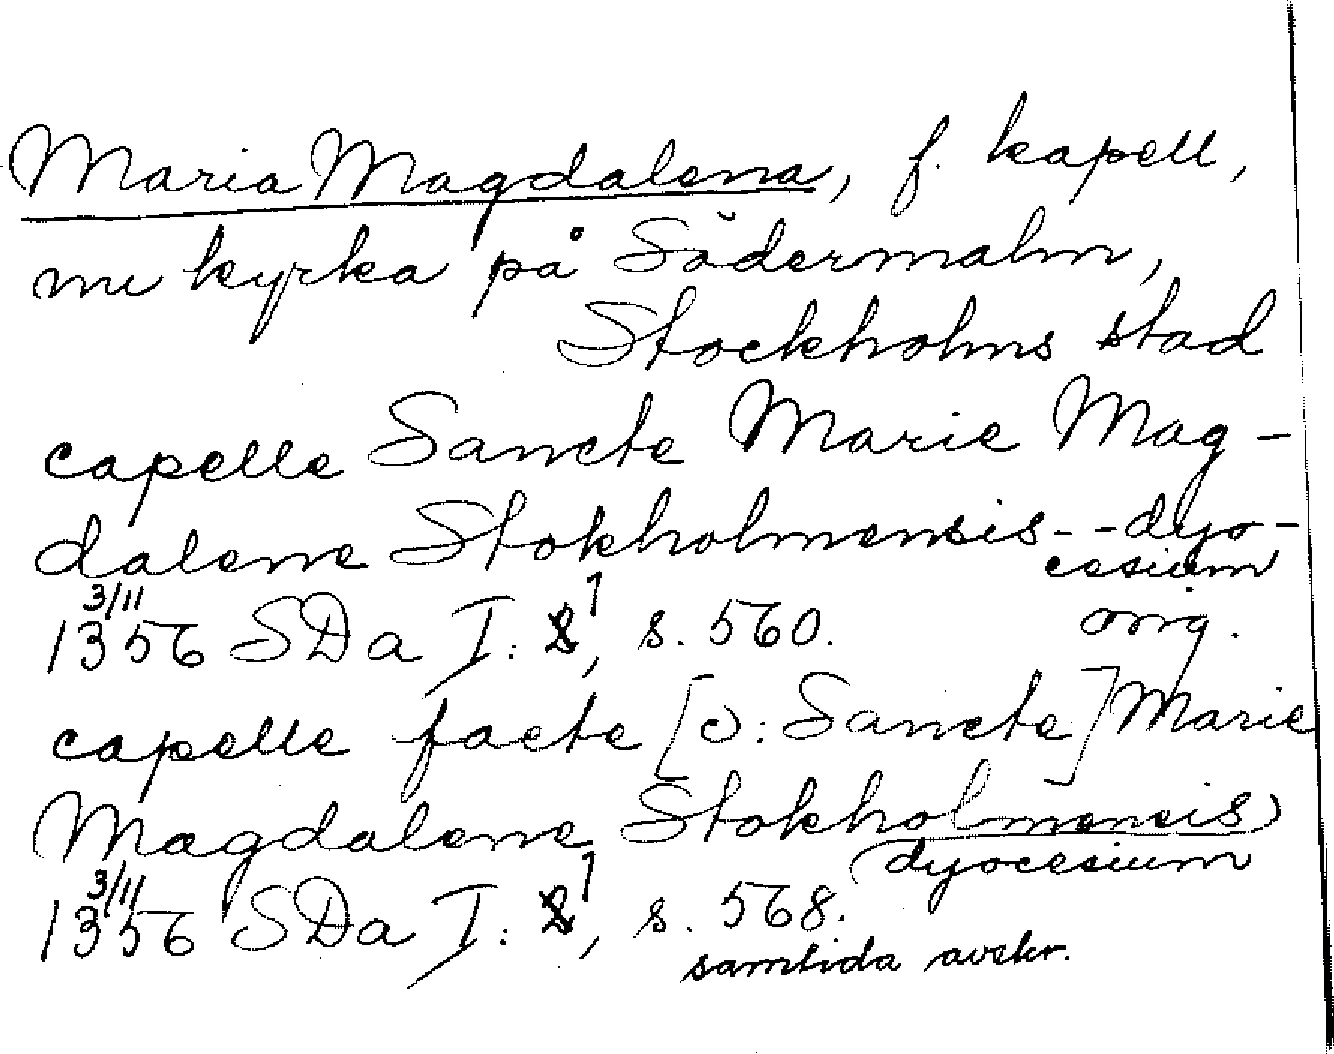 Maria Magdalena, f. kapell,
nu kyrka på Södermalm,
Stockholms stad
capelle Sancte Marie Mag-
dalene Stokholmensis - - dyo-
cesium
3/11
1356 SDa I: 1, s. 560. orig.
capelle facte [ɔ: Sancte] Marie
Magdalene Stokholmensis
dyocesium
3/11
1356 SDa I: 1, s. 568.
samtida avskr.